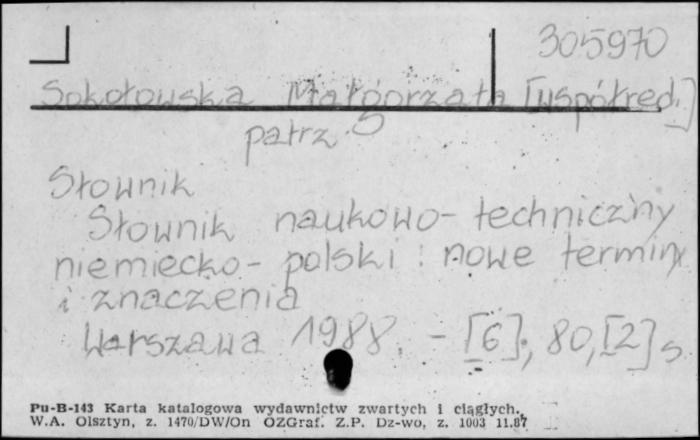 305970
Sokołowska Małgorzata [współred.]
patrz
Słownik
Słownik naukowo-techniczny
niemiecko-polski : nowe terminy
i znaczenia
Warszawa 1988. - [6], 80, [2] s.
Pu-B-143 Karta katalogowa wydawnictw zwartych i ciągłych.
W.A. Olsztyn, z. 1470/DW/On OZGraf. Z.P. Dz-wo, z. 1003 11.87